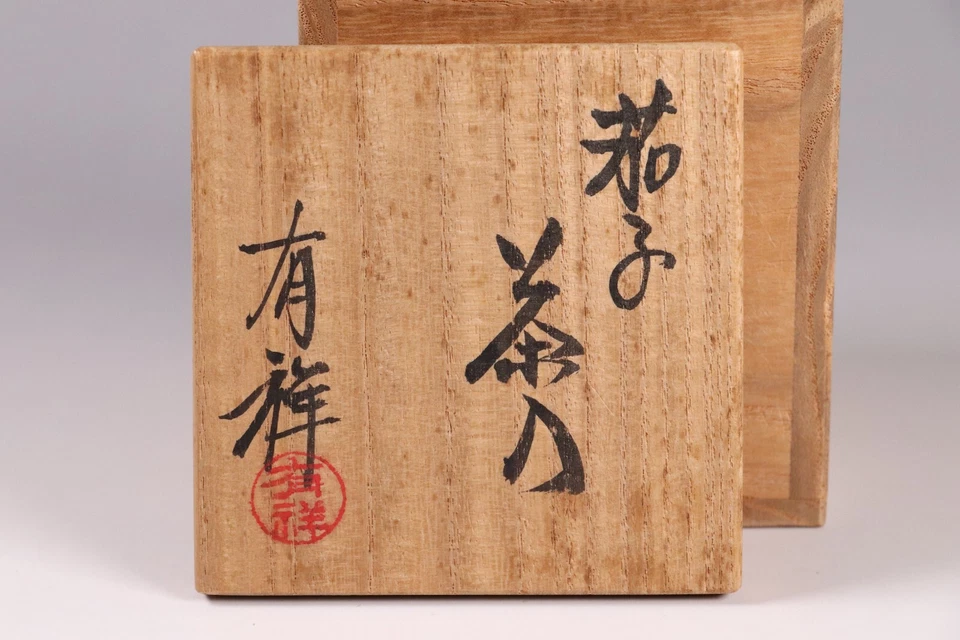 茄子
茶入
有祥
有祥